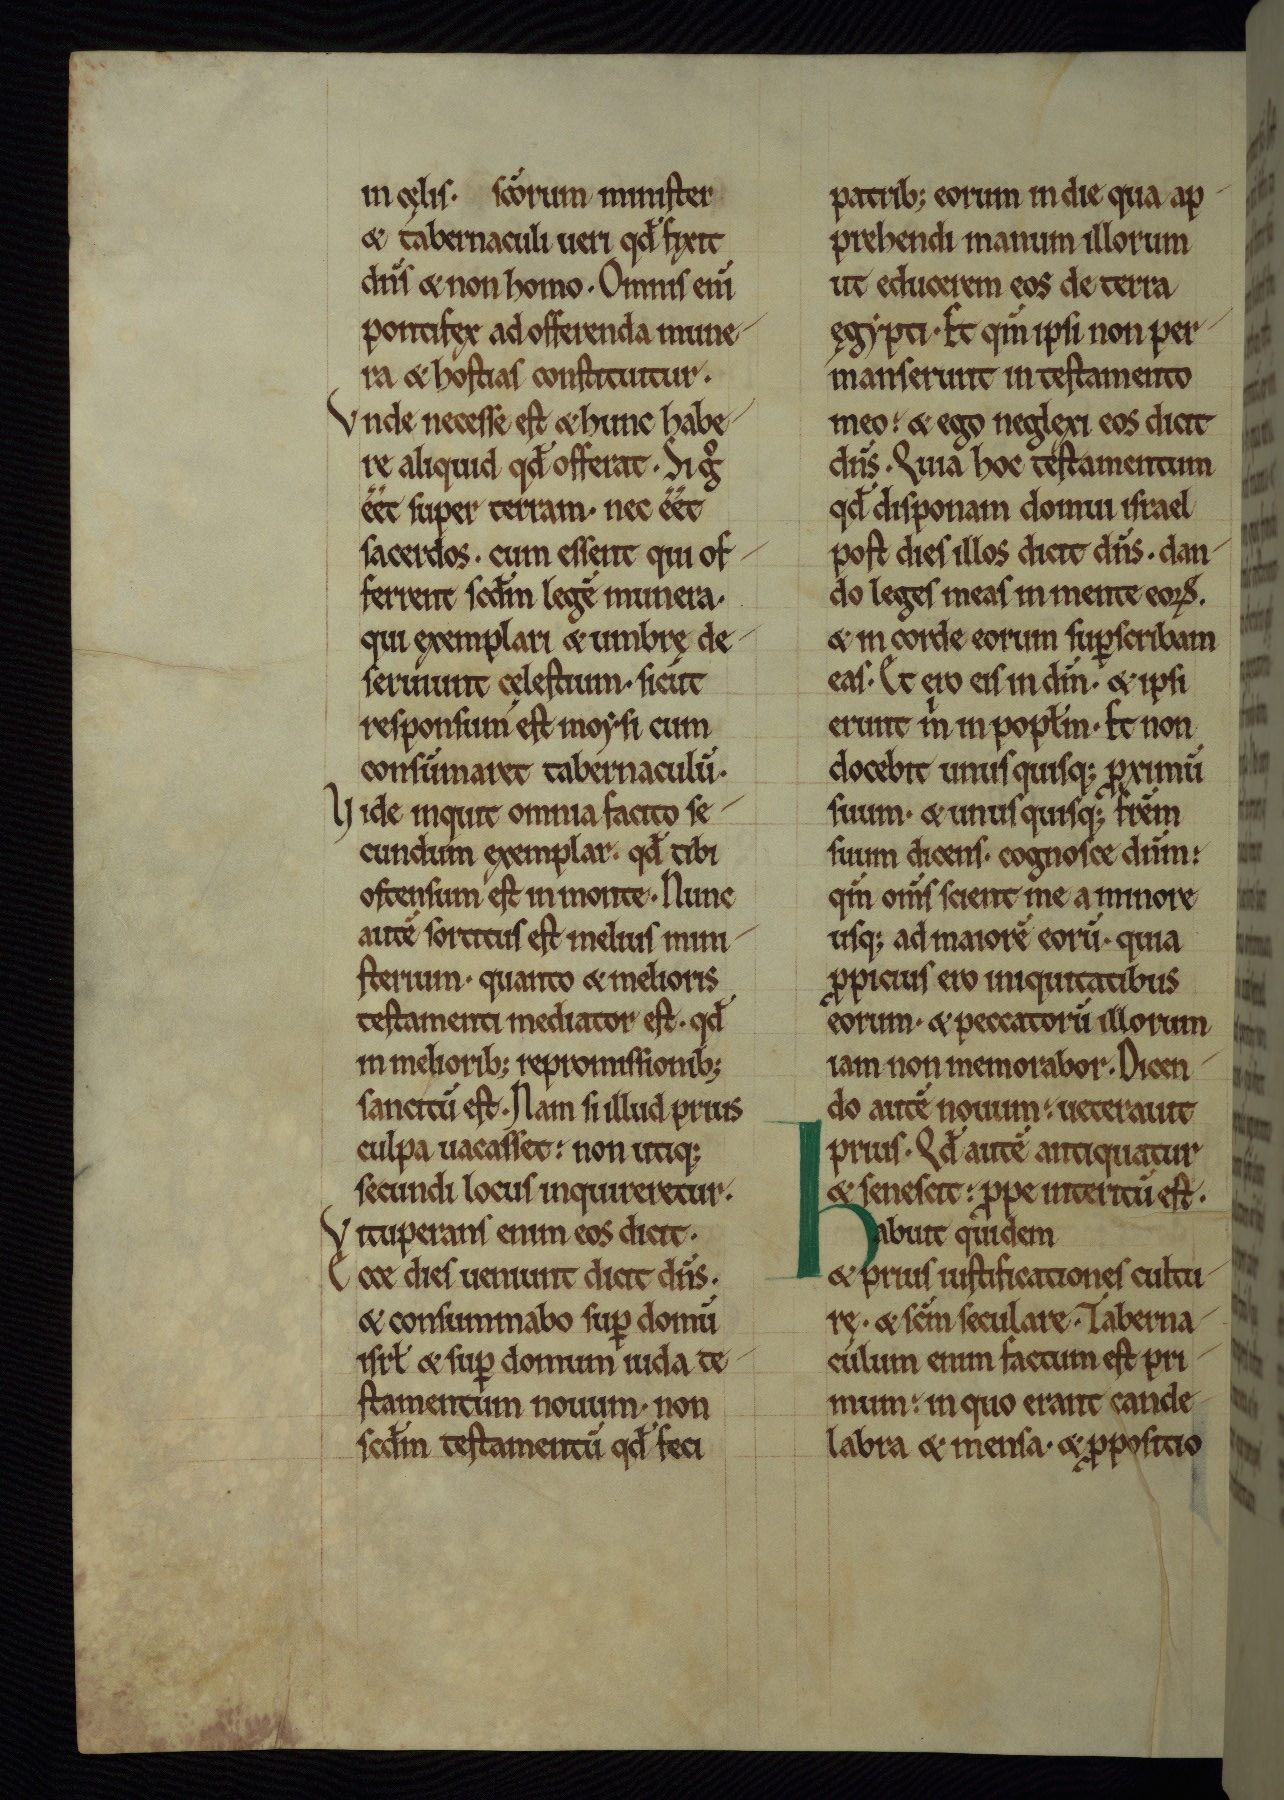 in cęlis· scõrum minister
& tabernaculi ueri qđ fixit
dñs & non homo· Omnis enĩ
pontifex ad offerenda mune-
ra & hostias constituitur·
Vnde necesse est & hunc habe-
re aliquid qđ offerat· Si gͦ
ẽẽt super terram· nec ẽẽt
sacerdos· cum essent qui of-
ferrent scđm legẽ munera·
qui exemplari & umbrę de-
seruiunt cęlestium· sicut
responsum est moysi cum
consũmaret tabernaculũ·
Vide inquit omnia facito se-
cundum exemplar· qđ tibi
ostensum est in monte· Nunc
autẽ sortitus est melius mini-
sterium· quanto & melioris
testamenti mediator est· qđ
in meliorib; repromissionib;
sancitũ est· Nam si illud prius
culpa uacasset: non utiq;
secundi locus inquireretur·
Vituperans enim eos dicit·
Ecce dies ueniunt dicit dñs·
& consummabo suꝑ domũ
isrł & suꝑ domum iuda te-
stamentum nouum· non
scđm testamentũ qđ feci
patrib; eorum in die qua ap-
prehendi manum illorum
ut educerem eos de terra
ęgypti· Et qm̃ ipsi non per-
manserunt in testamento
meo: & ego neglexi eos dicit
dñs· Quia hoc testamentum
qđ disponam domui israel
post dies illos dicit dñs· dan-
do leges meas in mente eoꝝ·
& in corde eorum suꝑscribam
eas· Et ero eis in dm̃· & ipsi
erunt m̃ in popłm· Et non
docebit unusquisq; ꝓximũ
suum· & unusquisq; frẽm
suum dicens· cognosce dñm:
qm̃ om̃s scient me a minore
usq; ad maiorẽ eorũ· quia
ꝓpicius ero iniquitatibus
eorum· & peccatorũ illorum
iam non memorabor· Dicen-
do autẽ nouum: ueterauit
prius· Qđ autẽ antiquatur
& senescit: ꝓpe interitũ est·
Habuit quidem
& prius iustificationes cultu-
rę· & scm̃ seculare· Taberna-
culum enim factum est pri-
mum: in quo erant cande-
labra & mensa· & ꝓpositio